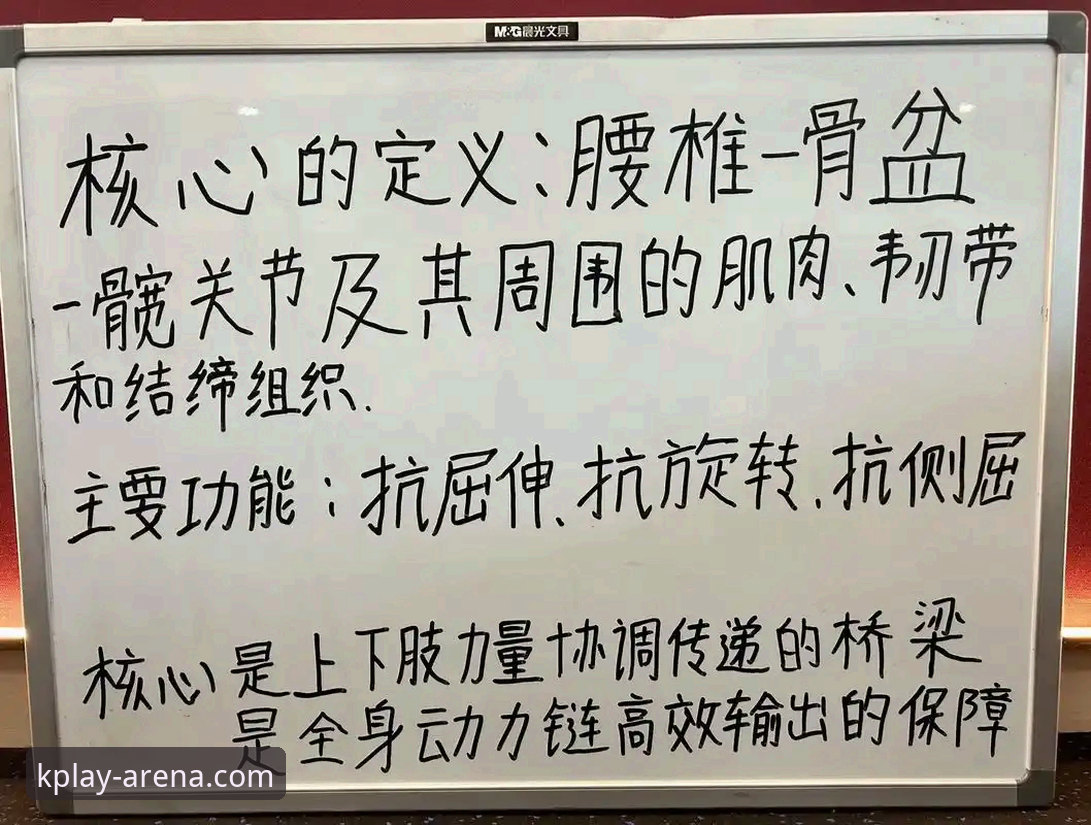 M&G晨光文具
核心的定义:腰椎-骨盆
-髋关节及其周围的肌肉、韧带
和结缔组织.
主要功能:抗屈伸、抗旋转、抗侧屈
核心是上下肢力量协调传递的桥梁
是全身动力链高效输出的保障
kplay-arena.com